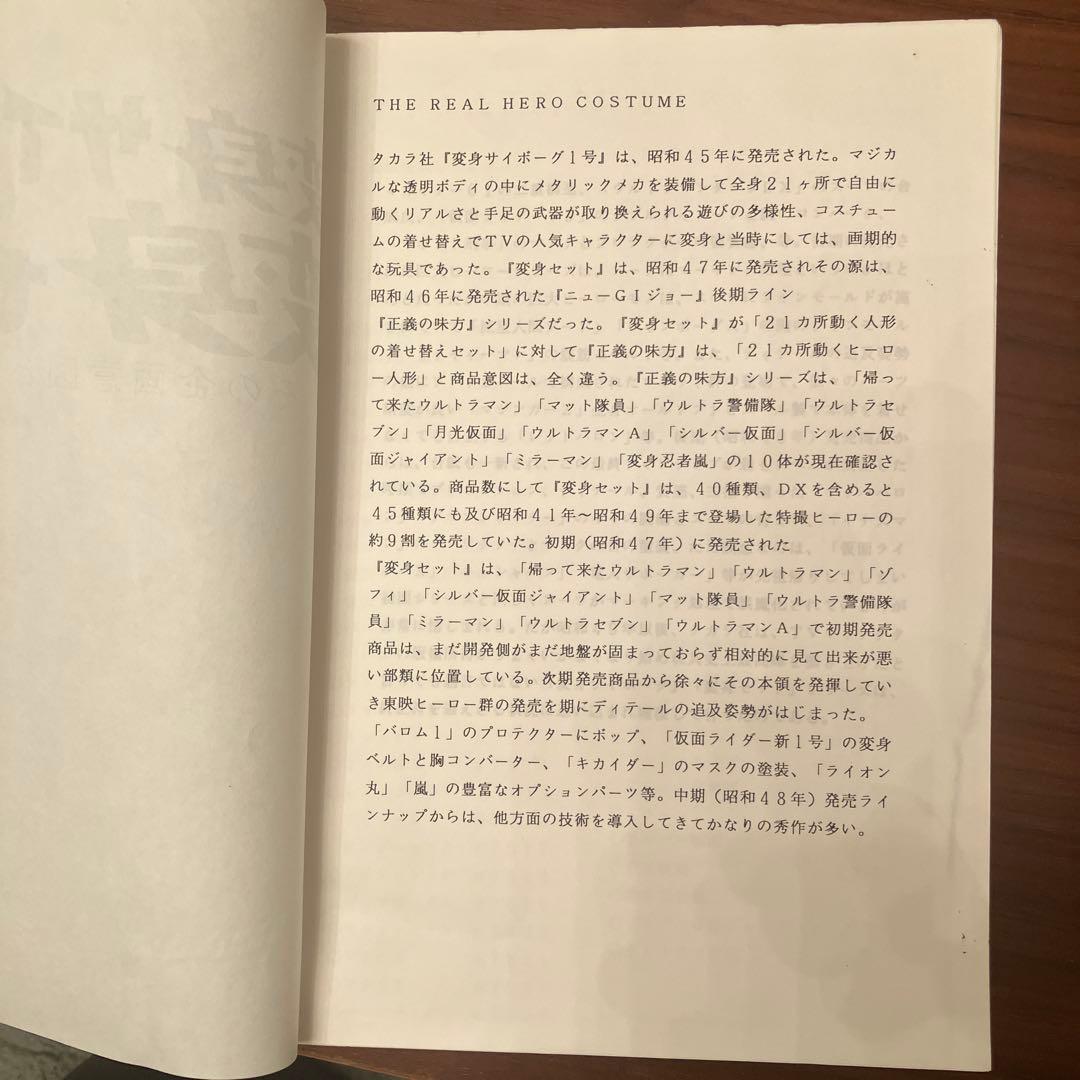 THE REAL HERO COSTUME
タカラ社『変身サイボーグ１号』は、昭和４５年に発売された。マジカ
ルな透明ボディの中にメタリックメカを装備して全身２１ヶ所で自由に
動くリアルさと手足の武器が取り換えられる遊びの多様性、コスチュー
ムの着せ替えでＴＶの人気キャラクターに変身と当時にしては、画期的
な玩具であった。『変身セット』は、昭和４７年に発売されその源は、
昭和４６年に発売された『ニューＧＩジョー』後期ライン
『正義の味方』シリーズだった。『変身セット』が「２１カ所動く人形
の着せ替えセット」に対して『正義の味方』は、「２１カ所動くヒーロ
ー人形」と商品意図は、全く違う。『正義の味方』シリーズは、「帰っ
て来たウルトラマン」「マット隊員」「ウルトラ警備隊」「ウルトラセ
ブン」「月光仮面」「ウルトラマンＡ」「シルバー仮面」「シルバー仮
面ジャイアント」「ミラーマン」「変身忍者嵐」の１０体が現在確認さ
れている。商品数にして『変身セット』は、４０種類、ＤＸを含めると
４５種類にも及び昭和４１年～昭和４９年まで登場した特撮ヒーローの
約９割を発売していた。初期（昭和４７年）に発売された
『変身セット』は、「帰って来たウルトラマン」「ウルトラマン」「ゾ
フィ」「シルバー仮面ジャイアント」「マット隊員」「ウルトラ警備隊
員」「ミラーマン」「ウルトラセブン」「ウルトラマンＡ」で初期発売
商品は、まだ開発側がまだ地盤が固まっておらず相対的に見て出来が悪
い部類に位置している。次期発売商品から徐々にその本領を発揮してい
き東映ヒーロー群の発売を期にディテールの追及姿勢がはじまった。
「バロム１」のプロテクターにボップ、「仮面ライダー新１号」の変身
ベルトと胸コンバーター、「キカイダー」のマスクの塗装、「ライオン
丸」「嵐」の豊富なオプションパーツ等。中期（昭和４８年）発売ライ
ンナップからは、他方面の技術を導入してきてかなりの秀作が多い。